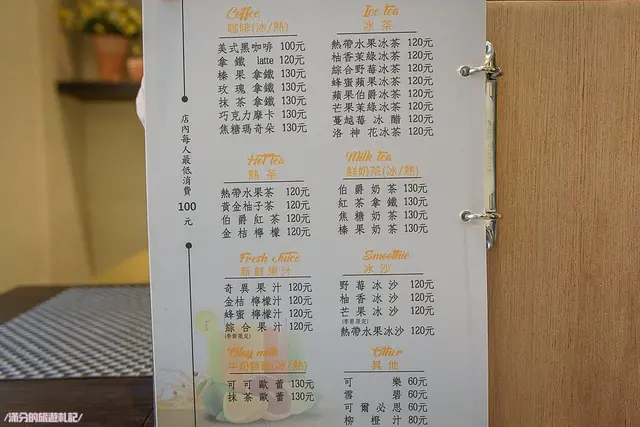 Coffee
咖啡(冰/熱)
美式黑咖啡 100元
拿鐵 latte 120元
榛果拿鐵 130元
玫瑰拿鐵 130元
抹茶拿鐵 130元
巧克力摩卡 130元
焦糖瑪奇朵 130元
Ice tea
冰茶
熱帶水果冰茶 120元
柚香茉綠冰茶 120元
綜合野莓冰茶 120元
蜂蜜蘋果冰茶 120元
蘋果伯爵冰茶 120元
芒果茉綠冰茶 120元
蔓越莓冰醋 120元
洛神花冰茶 120元
店內每人最低消費100元
Hot tea
熱茶
熱帶水果茶 120元
黃金柚子茶 120元
伯爵紅茶 120元
金桔檸檬 120元
Milk tea
鮮奶茶(冰/熱)
伯爵奶茶 130元
紅茶拿鐵 130元
焦糖奶茶 130元
榛果奶茶 130元
Fresh Juice
新鮮果汁
奇異果汁 120元
金桔檸檬汁 120元
蜂蜜檸檬汁 120元
綜合果汁 120元
(季節限定)
Smoothie
冰沙
野莓冰沙 120元
柚香冰沙 120元
芒果冰沙 120元
(季節限定)
熱帶水果冰沙 120元
milk
(冰/熱)
可可歐蕾 130元
抹茶歐蕾 130元
Other
其他
可樂 60元
雪碧 60元
可爾必思 60元
柳橙汁 80元
/滿分的旅遊札記/